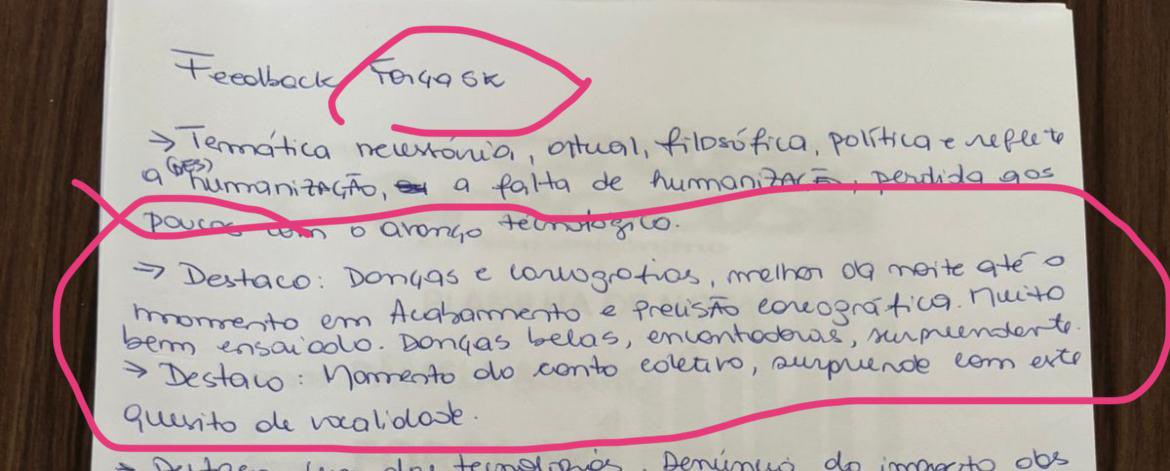 Feedback Forgask
→ Temática necessária, atual, filosófica, política e reflete
a (DES) humanizAÇÃO, a falta de humanizAÇÃO, perdida aos
poucos com o avanço tecnológico.
→ Destaco: Danças e coreografias, melhor da noite até o
momento em Acabamento e Precisão coreográfica. Muito
bem ensaiado. Danças belas, encantadoras, surpreendente.
→ Destaco: Momento do canto coletivo, surpreende com este
quesito de vocalidade.
→ Destaco das tecnologias. Denúncia do impacto das